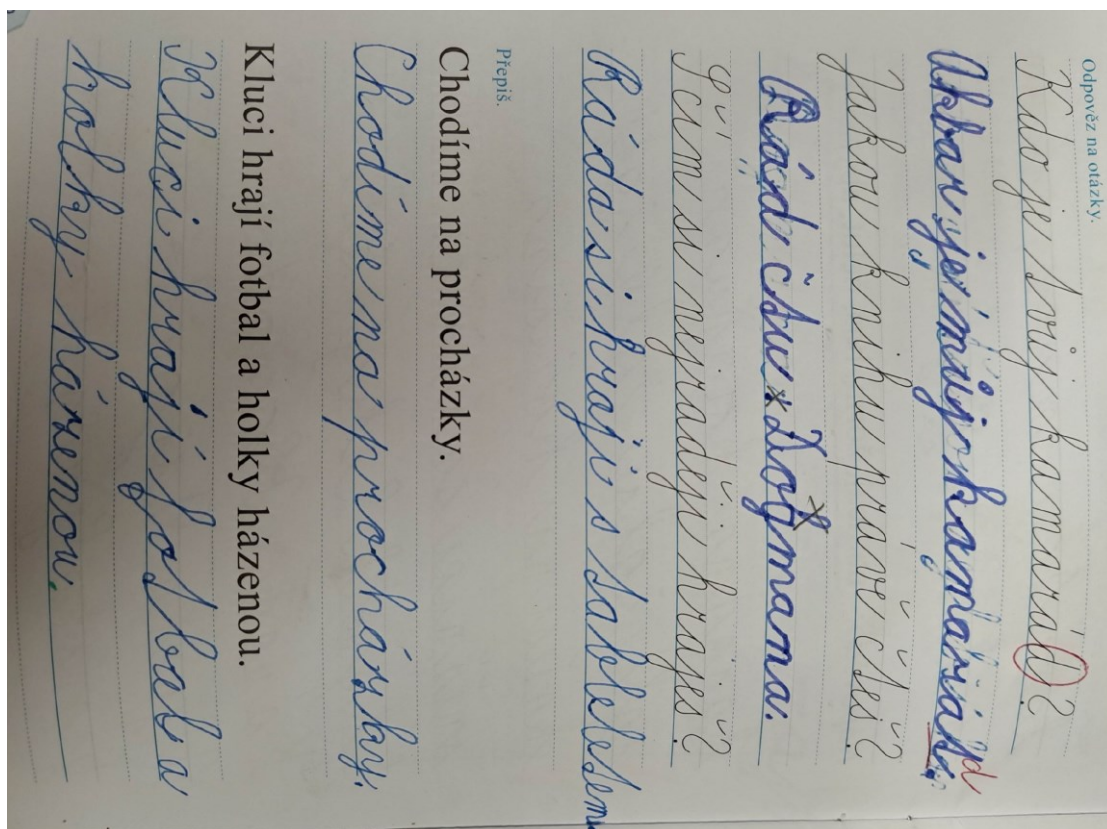 Odpověz na otázky.
Kdo je tvůj kamarád?
Akbar je můj kamarád.
Jakou knihu právě čteš?
Rád čtu Dogmana.
S čím si nejraději hraješ?
Ráda si hraji s tabletem
Přepiš.
Chodíme na procházky.
Chodíme na procházky.
Kluci hrají fotbal a holky házenou.
Kluci hrají fotbal a
holky házenou.